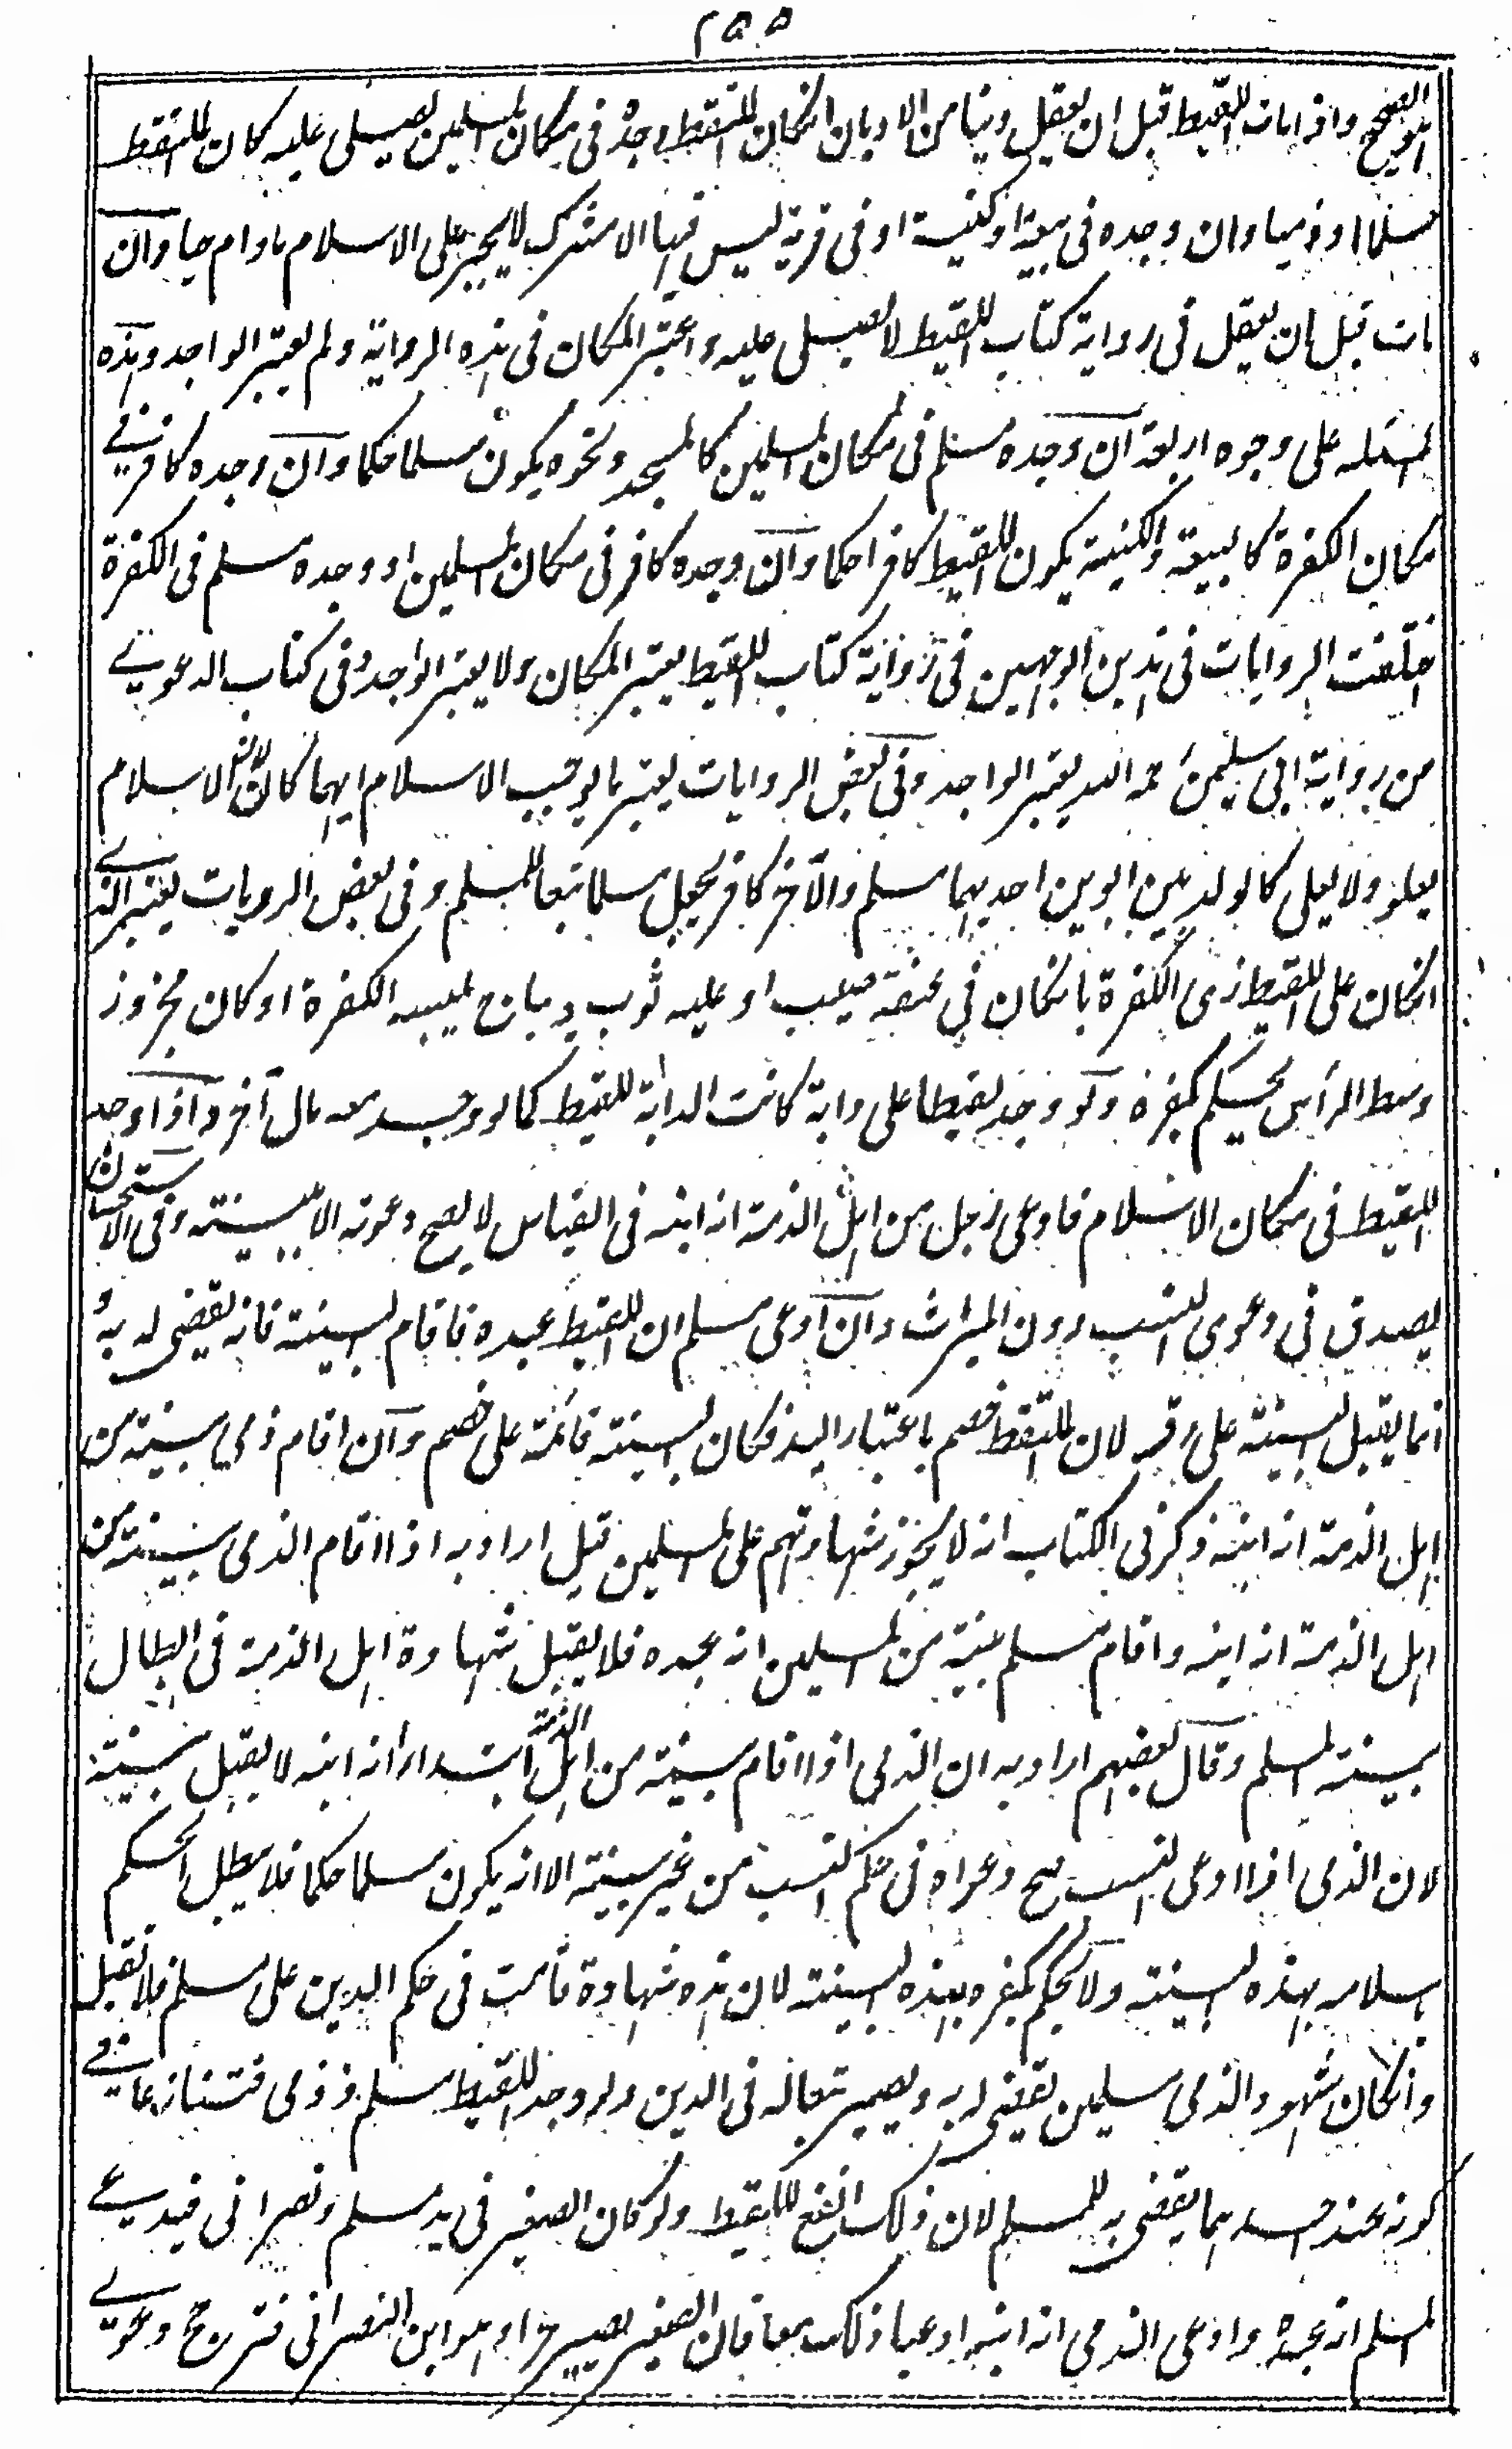 ٢٥٥
الصحيح واذا مات اللقيط قبل ان يعقل دينا من الاديان ان كان الملتقط وجده فى مكان المسلمين يصلى عليه كان الملتقط
مسلما او ذميا وان وجده فى بيعة او كنيسة او فى قرية ليس فيها الا مشرك لا يجبر على الاسلام مادام حيا وان
مات قبل ان يعقل فى رواية كتاب اللقيط لا يصلى عليه واعتبر المكان فى هذه الرواية ولم يعتبر الواجد وهذه
المسئله على وجوه اربعة ان وجده مسلم فى مكان المسلمين كالمسجد ونحوه يكون مسلما حكما وان وجده كافر فى
مكان الكفرة كالبيعة والكنيسة يكون اللقيط كافرا حكما وان وجده كافر فى مكان المسلمين او وجده مسلم فى الكفرة
اختلفت الروايات فى هذين الوجهين فى رواية كتاب اللقيط يعتبر المكان ولا يعتبر الواجد وفى كتاب الدعوى
من رواية ابى سليمن رحمه الله يعتبر الواجد وفى بعض الروايات يعتبر ما يوجب الاسلام ايهما كان لان الاسلام
يعلو ولا يعلى كالولد بين ابوين احديهما مسلم والآخر كافر يجعل مسلما تبعا للمسلم وفى بعض الروايات يعتبر الزى
ان كان على اللقيط زى الكفرة بان كان فى عنقه صليب او عليه ثوب ديباج يلبسه الكفرة او كان مجزوز
وسط الرأس يحكم بكفره ولو وجد لقيطا على دابة كانت الدابة للقيط كما لو وجد معه مال آخر واذا وجد
اللقيط فى مكان الاسلام فادعى رجل من اهل الذمة انه ابنه فى القياس لا يصح دعوته الا ببينته وفى الاستحسان
يصدق فى دعوى النسب دون الميراث وان ادعى مسلم ان اللقيط عبده فاقام البينة فانه يقضى له به و
انما يقبل البينة على رقه لان الملتقط خصم باعتبار اليد فكان البينة قائمة على خصم وان اقام ذمى بينة من
اهل الذمة انه ابنه ذكر فى الكتاب انه لا يجوز شهادتهم على المسلمين قيل اراد به اذا اقام الذمى بينة من
اهل الذمة انه ابنه واقام مسلم بينة من المسلمين انه عبده فلا يقبل شهادة اهل الذمة فى ابطال
بينة المسلم وقال بعضهم اراد به ان الذمى اذا اقام بينة من اهل الذمة ابتداء انه ابنه لا يقبل بينته
لان الذمى اذا ادعى النسب صح دعواه فى حكم النسب من غير بينة الا انه يكون مسلما حكما فلا يبطل الحكم
باسلامه بهذه البينة ولا يحكم بكفره بهذه البينة لان هذه شهادة قامت فى حكم الدين على مسلم فلا تقبل
وان كان شهود الذمى مسلمين يقضى له به ويصير تبعا له فى الدين ولو وجد اللقيط مسلم وذمى فتنازعا فى
كونه عند احدهما يقضى به للمسلم لان ذلك انفع للقيط ولو كان الصغير فى يد مسلم ونصرانى فيدعى
المسلم انه عبده وادعى الذمى انه ابنه ادعيا ذلك معا فان الصغير يصير حرا وهو ابن النصرانى فترجح دعوى